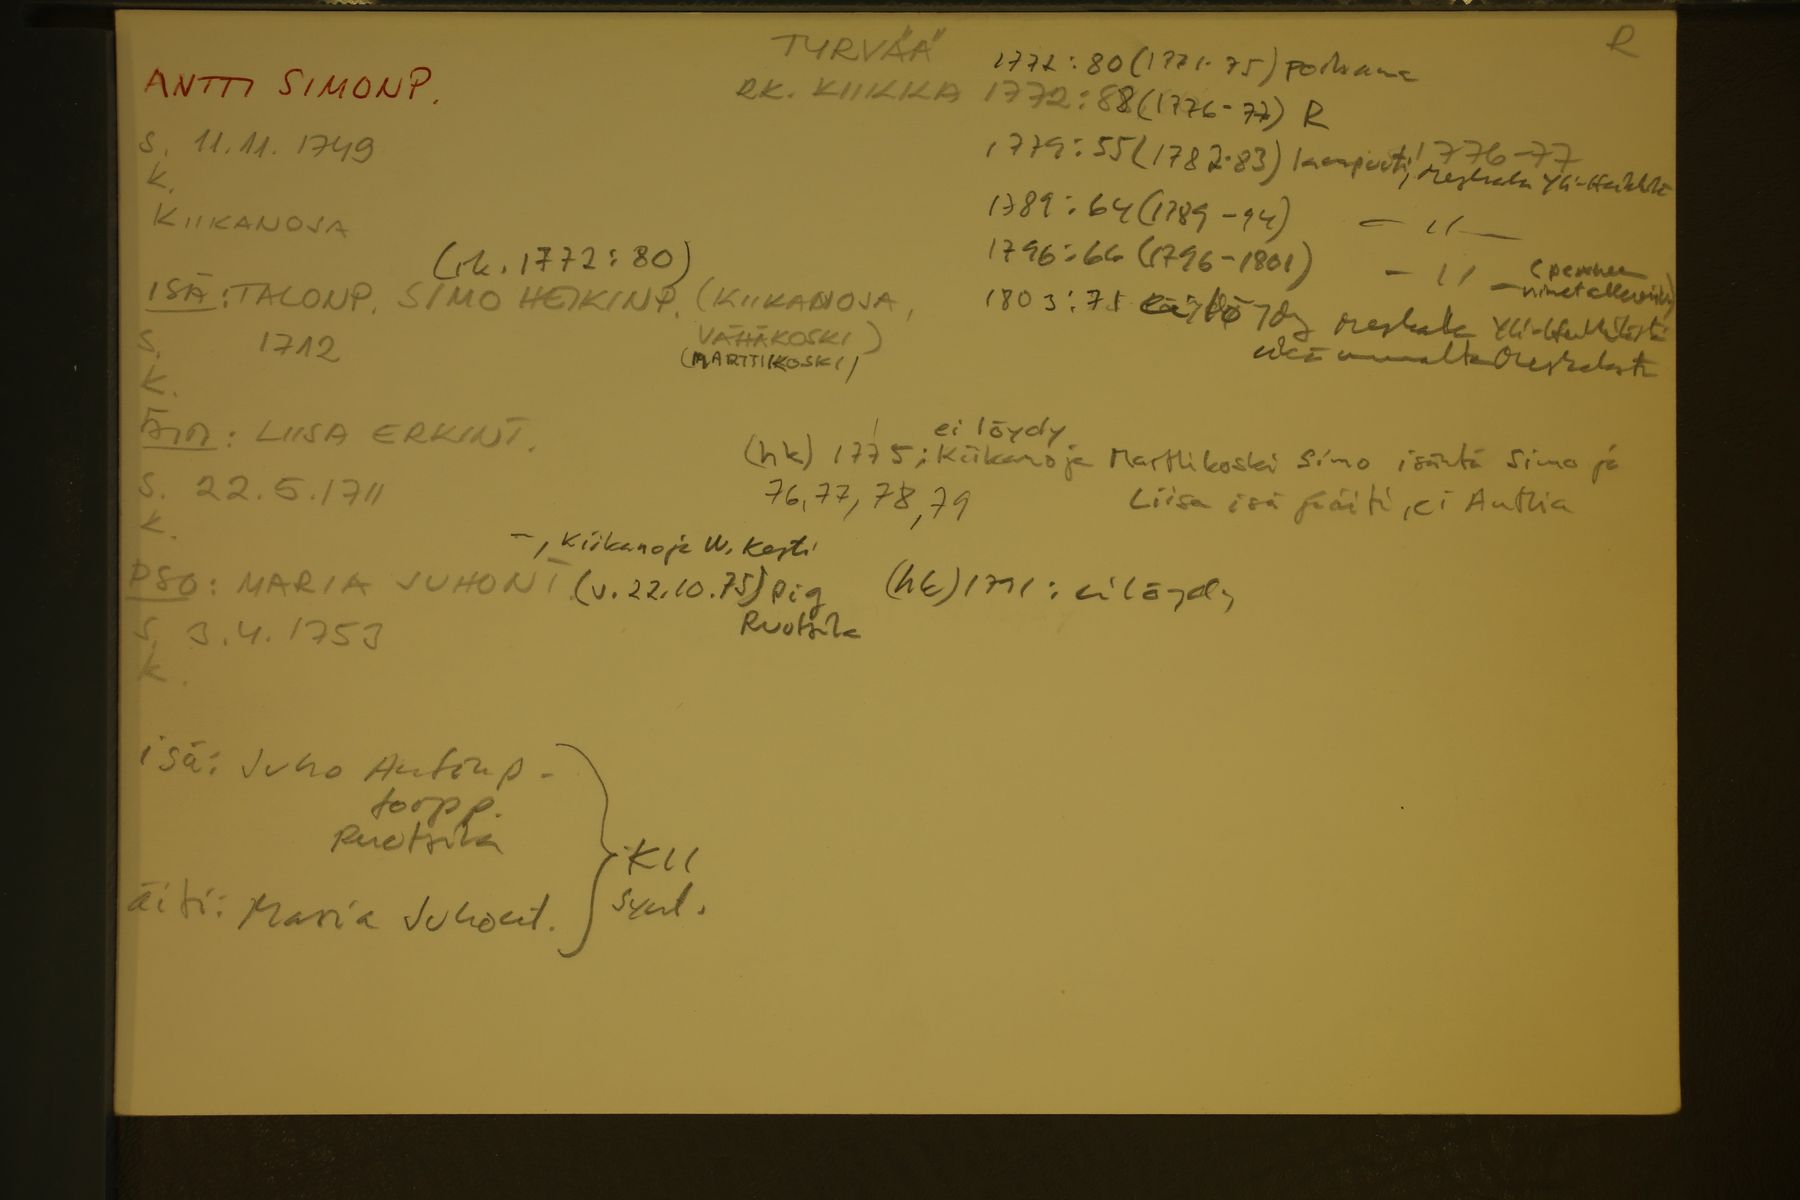 TYRVÄÄ
R
ANTTI SIMONP.
RK. KIIKKA
1772:80 (1771-75) poikana
1772:88 (1776-77) R
1776-77
1779:55 (1782-83)
1789:64 (1789-94) — " —
1796:66 (1796-1801) — " —
1803:75
S. 11.11.1749
K.
KIIKANOJA
(rk. 1772:80)
ISÄ: TALONP. SIMO HEIKINP. (KIIKANOJA,
VÄHÄKOSKI)
(MARTTIKOSKI)
S. 1712
K.
ÄITI: LIISA ERKINT.
S. 22.5.1711
K.
ei löydy
(hk) 1775; Kiikanoja Marttikoski Simo isäntä Simo ja
76, 77, 78, 79
Liisa isä ja äiti, ei Anttia
-, Kiikanoja
PSO: MARIA JUHONT. (v. 22.10.75) pig
Ruotsila
(hk) 1791: ei löydy
S. 3.4.1753
K.
isä: Juho Antinp -
torpp.
Ruotsila
äiti: Maria Juhont.
KII
synt.